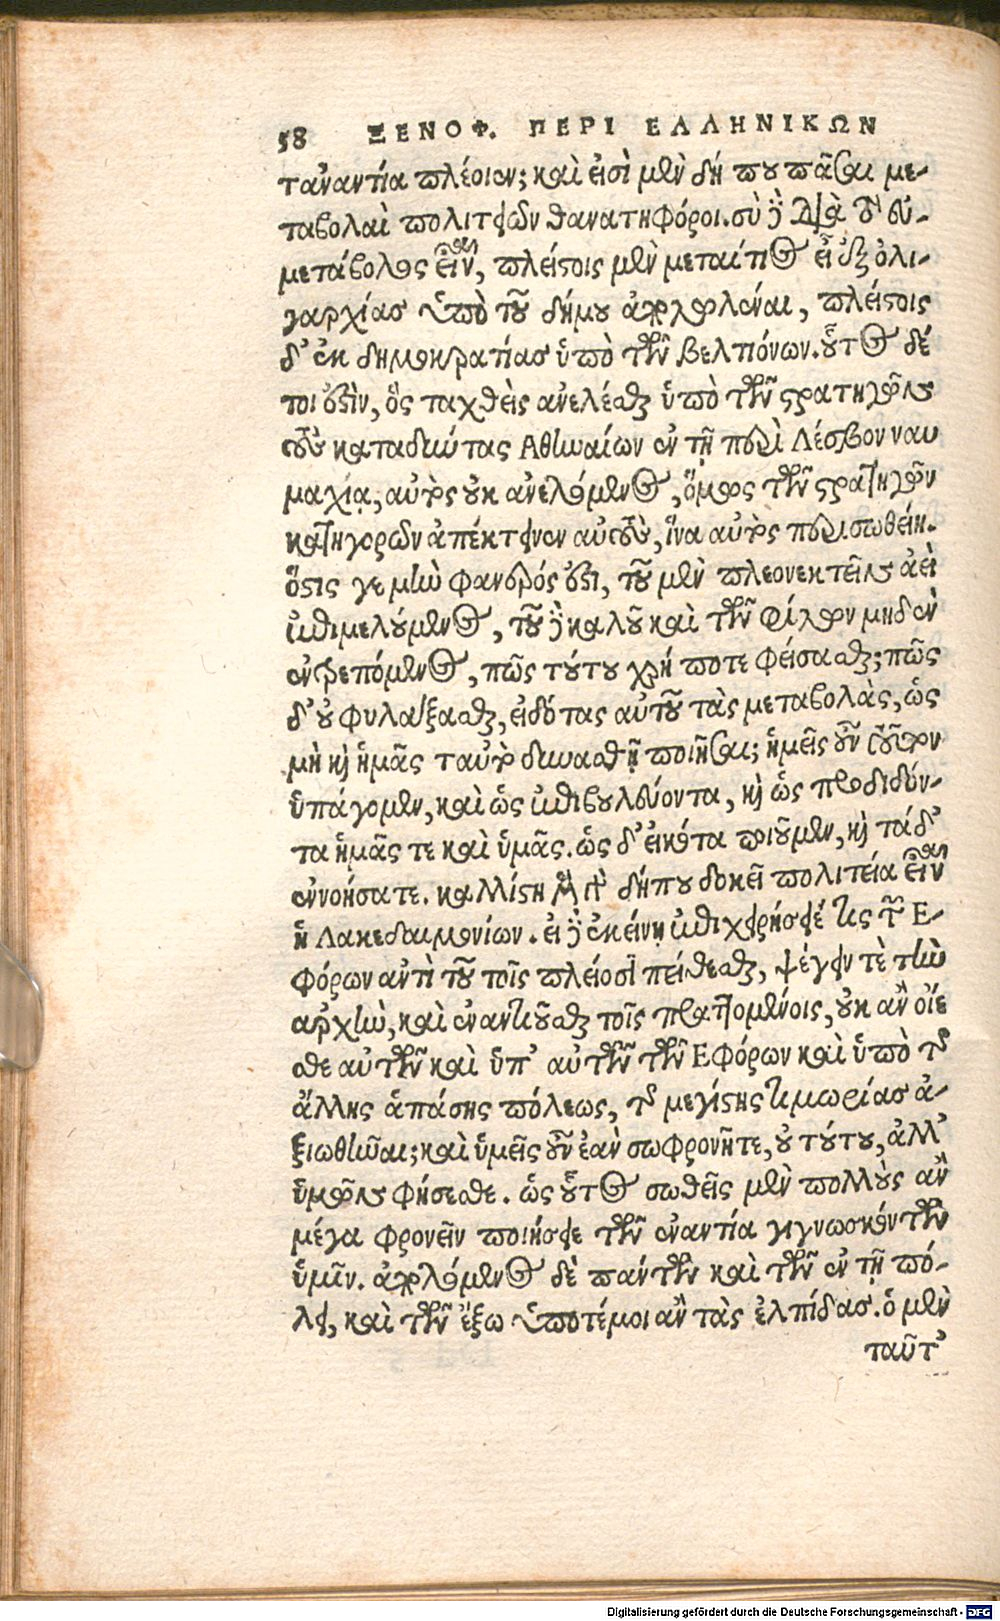 58 ΞΕΝΟΦ. ΠΕΡΙ ΕΛΛΗΝΙΚΩΝ
τἀναντία πλέοιεν; καὶ εἰσὶ μὲν δή που πᾶσαι με-
ταβολαὶ πολιτειῶν θανατηφόροι. σὺ δὲ διὰ τὸ εὐ-
μετάβολος εἶναι, πλείστοις μὲν μεταίτιος εἶ ἐξ ὀλι-
γαρχίας ὑπὸ τοῦ δήμου ἀπολωλέναι, πλείστοις
δ' ἐκ δημοκρατίας ὑπὸ τῶν βελτιόνων. οὗτος δέ
τοι ἐστὶν, ὃς ταχθεὶς ἀνελέσθαι ὑπὸ τῶν στρατηγῶν
τοὺς καταδύντας Ἀθηναίων ἐν τῇ περὶ Λέσβον ναυ
μαχίᾳ, αὐτὸς οὐκ ἀνελόμενος, ὅμως τῶν στρατηγῶν
κατηγορῶν ἀπέκτεινεν αὐτοὺς, ἵνα αὐτὸς περισωθείη.
ὅστις γε μὴν φανερός ἐστι, τοῦ μὲν πλεονεκτεῖν ἀεὶ
ἐπιμελούμενος, τοῦ δὲ καλοῦ καὶ τῶν φίλων μηδὲν
ἐντρεπόμενος, πῶς τούτου χρή ποτε φείσασθαι; πῶς
δ' οὐ φυλάξασθαι, εἰδότας αὐτοῦ τὰς μεταβολὰς, ὡς
μὴ καὶ ἡμᾶς ταὐτὸ δυνασθῇ ποιῆσαι; ἡμεῖς οὖν τοῦτον
ὑπάγομεν, καὶ ὡς ἐπιβουλεύοντα, καὶ ὡς προδιδόν-
τα ἡμᾶς τε καὶ ὑμᾶς. ὡς δ' εἰκότα ποιοῦμεν, καὶ τάδ'
ἐννοήσατε. καλλίστη μὲν γὰρ δήπου δοκεῖ πολιτεία εἶναι
ἡ Λακεδαιμονίων. εἰ δὲ ἐκείνῃ ἐπιχειρήσειέ τις τῶν Ἐ-
φόρων ἀντὶ τοῦ τοῖς πλείοσι πείθεσθαι, ψέγειν τὲ τὴν
ἀρχὴν, καὶ ἐναντιοῦσθαι τοῖς πραττομένοις, οὐκ ἂν οἴε
σθε αὐτὸν καὶ ὑπ' αὐτῶν τῶν Ἐφόρων καὶ ὑπὸ τῆς
ἄλλης ἁπάσης πόλεως, τῆς μεγίστης τιμωρίας ἀ-
ξιωθῆναι; καὶ ὑμεῖς οὖν ἐὰν σωφρονῆτε, οὐ τούτου, ἀλλ'
ὑμῶν φήσεσθε. ὡς οὗτος σωθεὶς μὲν πολλοὺς ἂν
μέγα φρονεῖν ποιήσειε τῶν ἐναντία γιγνωσκόντων
ὑμῖν. ἀπολόμενος δὲ πάντων καὶ τῶν ἐν τῇ πό-
λει, καὶ τῶν ἔξω ὑποτέμοι ἂν τὰς ἐλπίδας. ὁ μὲν
ταῦτ'
Digitalisierung gefördert durch die Deutsche Forschungsgemeinschaft - DFG